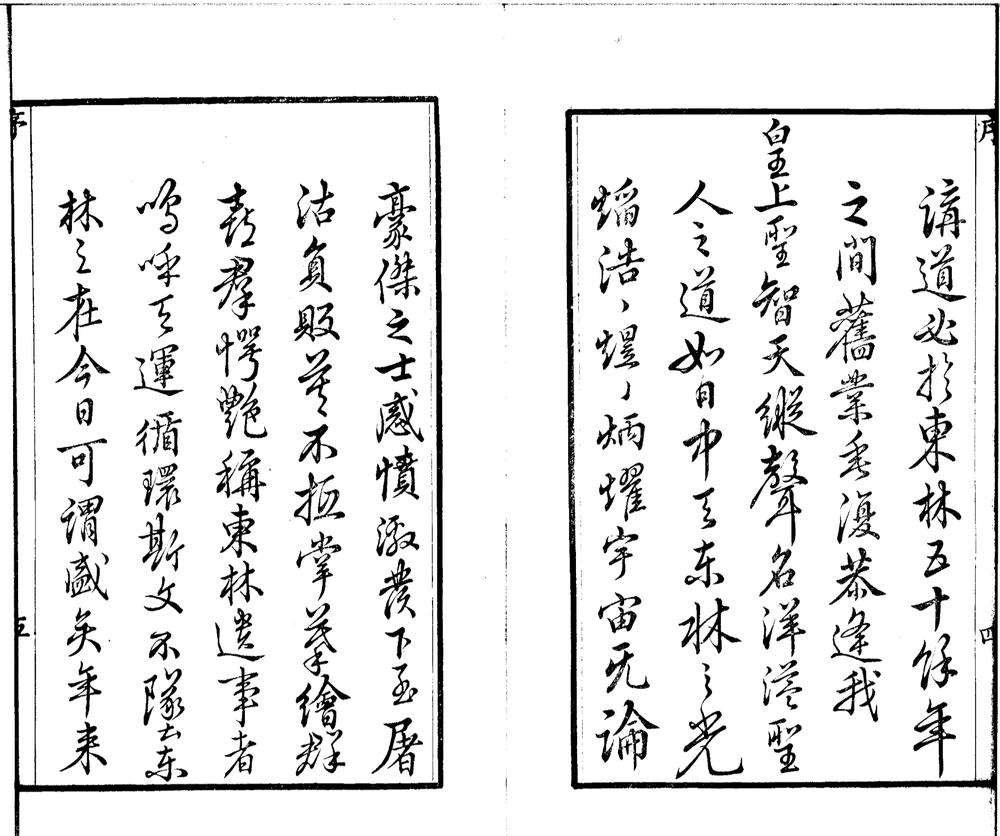 序
四
講道必於東林五十餘年
之間舊業垂復恭逢我
皇上聖智天縱聲名洋溢聖
人之道如日中天東林之光
熖浩〻煜〻炳耀宇宙无論
豪傑之士感憤激發下至屠
沽負販莫不抵掌摹繪群
喜羣愕艷稱東林遺事者
嗚呼天運循環斯文不墜東
林之在今日可謂盛矣年來
序
五